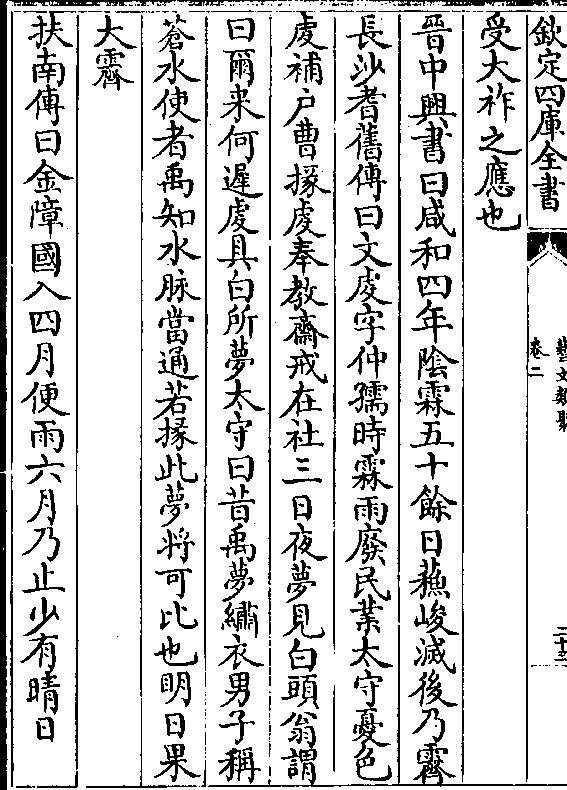 欽定四庫全書
藝文類聚
卷二
二十三
受大祚之應也
晉中興書曰咸和四年陰霖五十餘日蘓峻滅後乃霽
長沙耆舊傳曰文䖍字仲孺時霖雨廢民業太守憂色
䖍補户曹掾䖍奉教齋戒在社三日夜夢見白頭翁謂
曰爾来何遲䖍具白所夢太守曰昔禹夢繡衣男子稱
蒼水使者禹知水脉當通若掾此夢將可比也明日果
大霽
扶南傳曰金障國入四月便雨六月乃止少有晴日